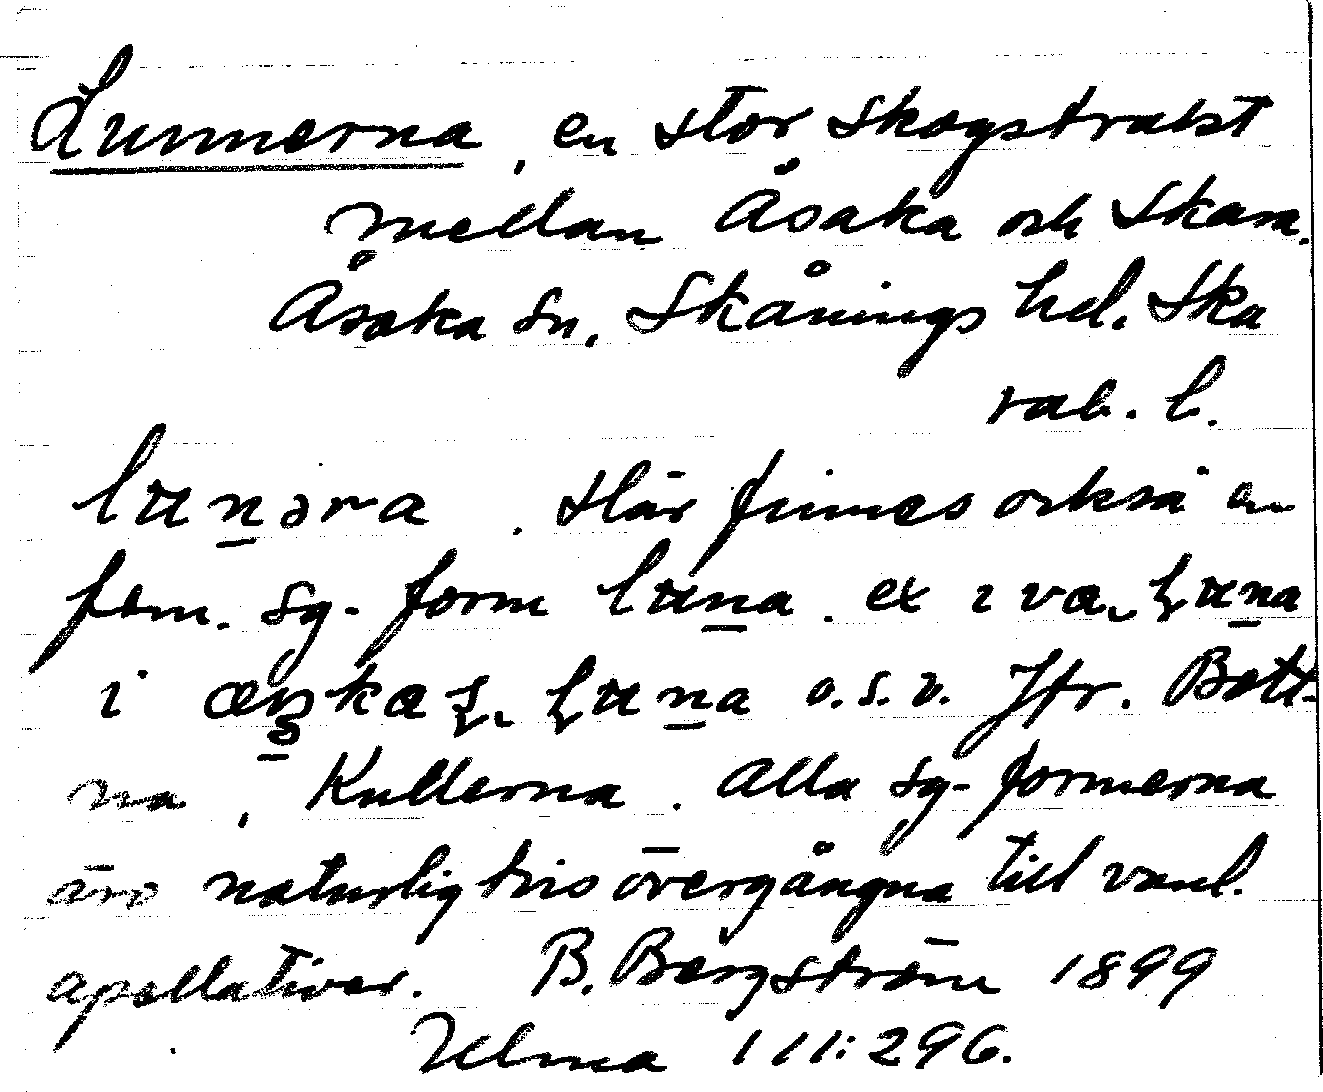 Lunnerna, en stor skogstrakt
mellan Åsaka och Skara.
Åsaka sn. Skånings hd. Ska
rab. l.
lunəra. Här finnes också en
fem. sg. form luna. ex i va luna
i luna o.s.v. Jfr. Bott-
na, Kullerna. Alla sg-formerna
äro naturligtvis övergångna till vanl.
apellativer. B. Bergström 1899
Ulma 111:296.